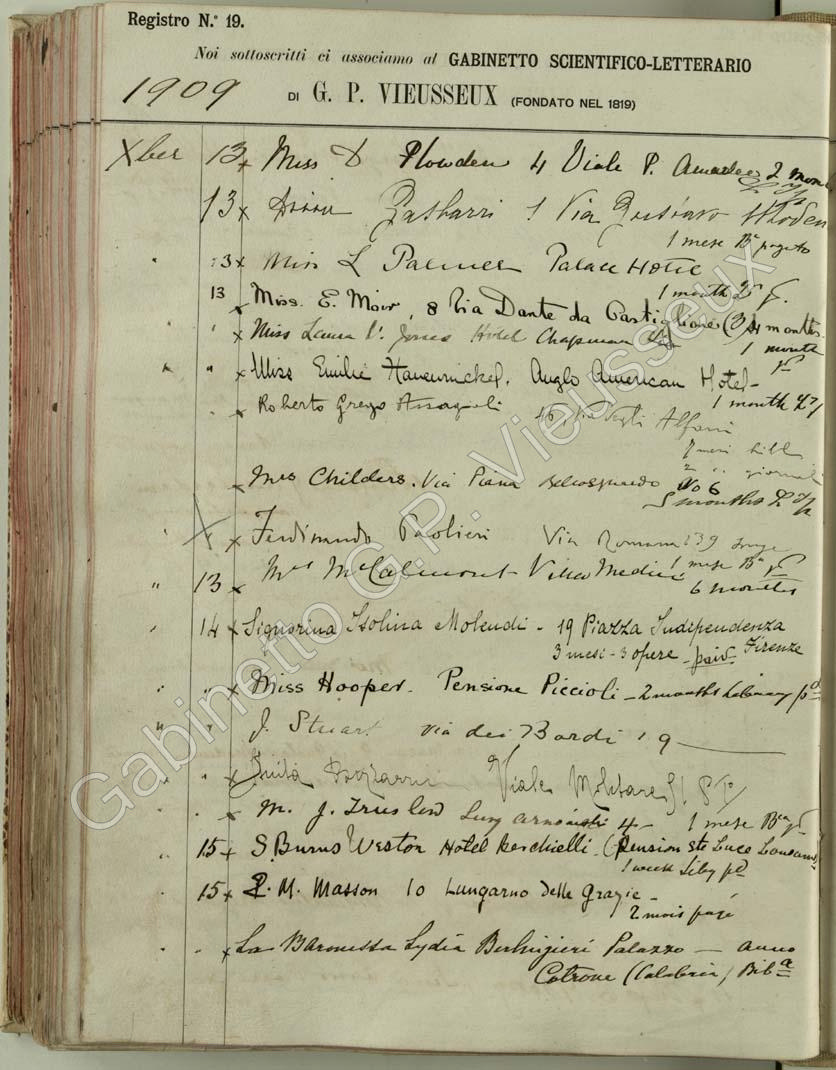 Registro N.° 19.
Noi sottoscritti ci associamo al GABINETTO SCIENTIFICO-LETTERARIO
1909 DI G. P. VIEUSSEUX (FONDATO NEL 1819)
Xber 13 x Miss D Plowden 4 Viale P. Amadeo 2 month
13 x 1 Via Gustavo Moden
1 mese Bª pagato
" 13 x Miss L Palmer Palace Hotel
1 month
13 x Miss. E. Moir, 8 Via Dante da Castiglione (3) 4 months.
" " x Miss Laura Jones Hotel Chapman
1 month
" " x Miss Emilie Anglo American Hotel
1 month
Roberto Grego Assagioli 46, Via degli Alfani
x Mrs Childers. Via Piana Bellosguardo No 6
5 months
" x Ferdinando Paolieri Via Romana 139
1 mese Bª
" 13 x Mrs McCalmont Villa Medici
6 months
" 14 x Signorina Isolina Molendi - 19 Piazza Indipendenza
3 mesi - 3 opere - paid Firenze
" " x Miss Hooper. Pensione Piccioli - 2 months Library pd
" " J. Stuart Via dei Bardi 19
" " x Viale Militare
" x M. J. Truslow Lung'arno 4 - 1 mese
" 15 x S. Burns Weston Hotel Berchielli - (Pension Ste Luce Lausanne)
1 week Liby pd
" 15 x P. M. Masson 10 Lungarno delle Grazie -
2 mois payé
" " x La Baronessa Lydia Berlingieri Palazzo — anno
Cotrone (Calabria) Bibª
Gabinetto G.P. Vieusseux